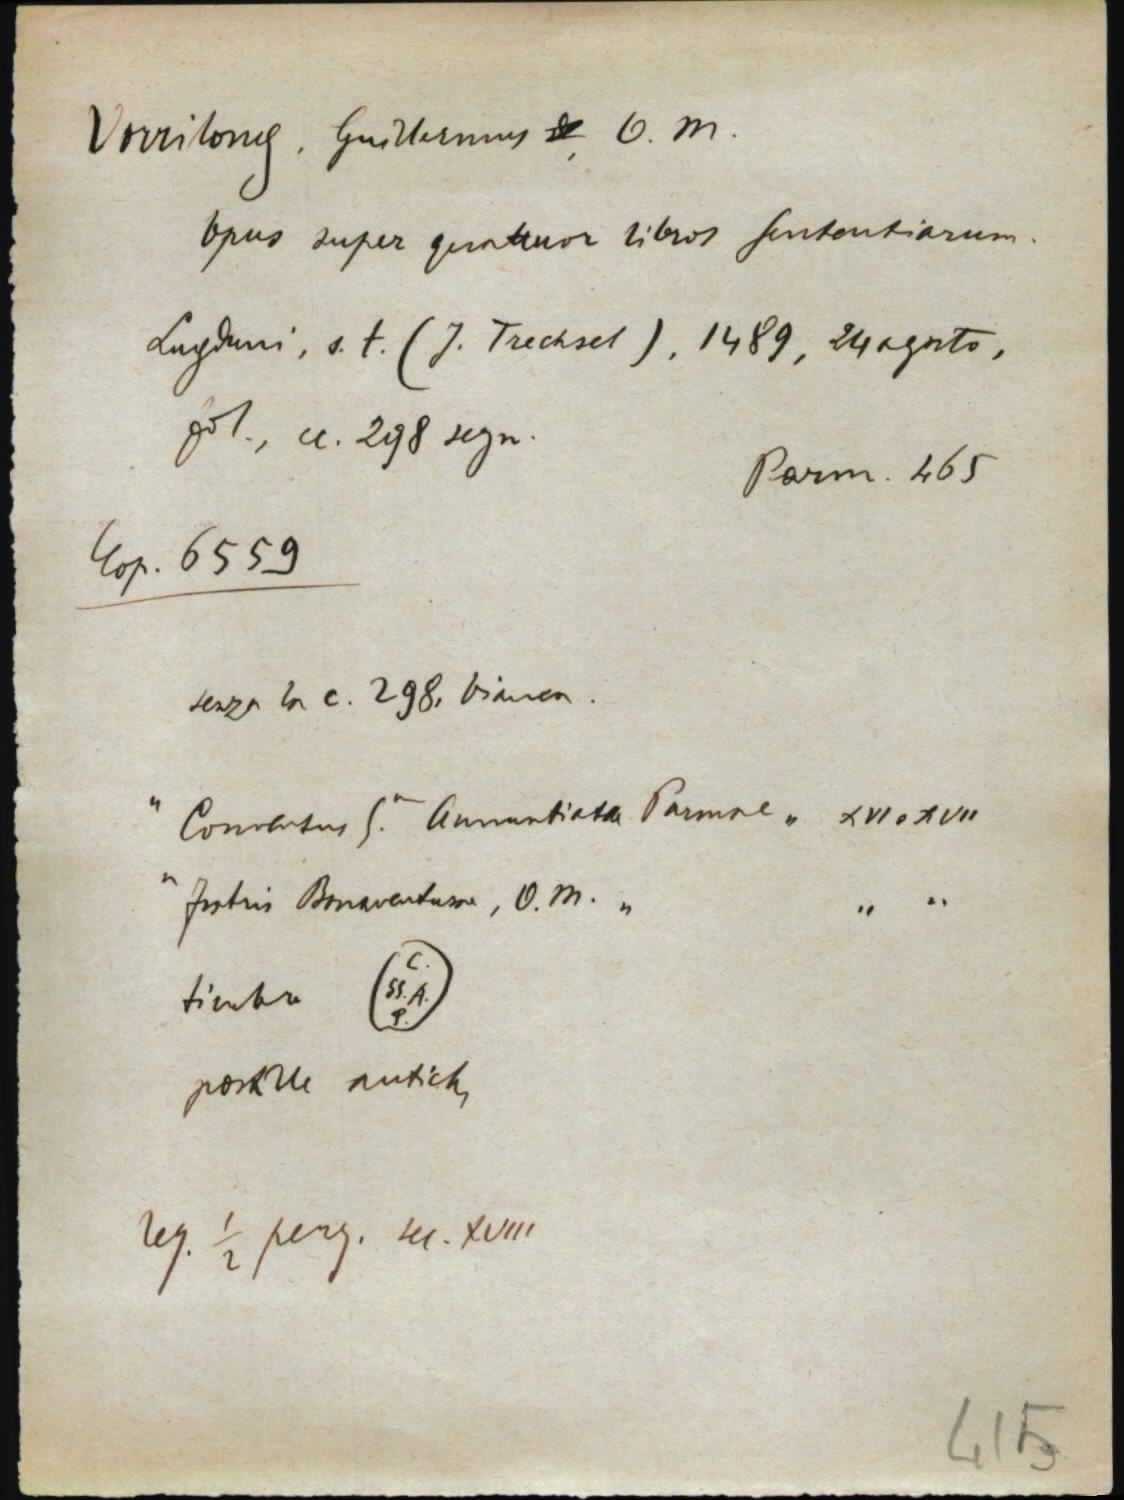 Vorrilong, Guillermus de, O. M.
Opus super quatuor libros Sententiarum.
Lugduni, s. t. (J. Trechsel), 1489, 24 agosto,
fol., cc. 298 segn.
Parm. 465
Cop. 6559
senza la c. 298, bianca.
" Conventus S.ae Annuntiatae Parmae " XVI o XVII
" fratris Bonaventurae, O. M. " " "
timbro
C.
SS. A.
P.
postille antiche
leg. 1/2 perg. sec. XVIII
415